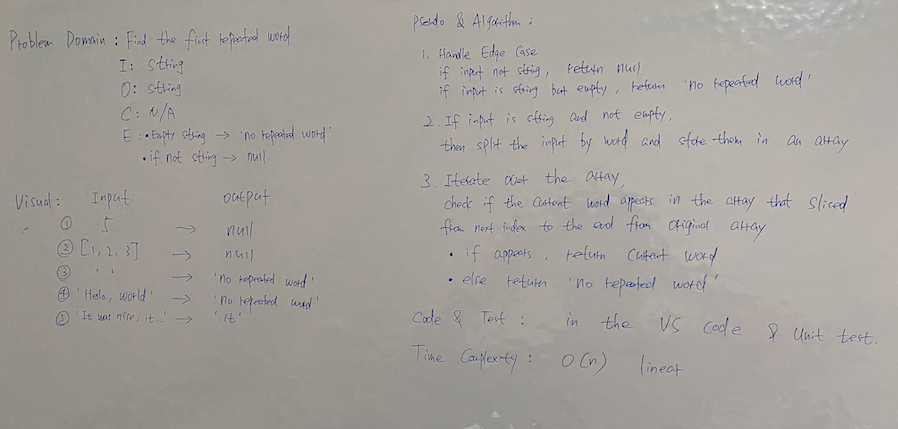 Problem Domain : Find the first repeated word
I : string
O : string
C : N/A
E : • Empty string → 'no repeated word'
• if not string → null
Visual : Input output
① 5 → null
② [1, 2, 3] → null
③ ' ' → 'no repeated word'
④ 'Hello, world' → 'no repeated word'
⑤ 'It was nice, it.' → 'it'
Pseudo & Algorithm :
1. Handle Edge Case
if input not string, return null
if input is string but empty, return 'no repeated word'
2. If input is string and not empty,
then split the input by word and store them in an array
3. Iterate over the array,
check if the current word appears in the array that sliced
from next index to the end from original array
• if appears, return current word
• else return 'no repeated word'
Code & Test : in the VS code & unit test.
Time Complexity : O(n) linear